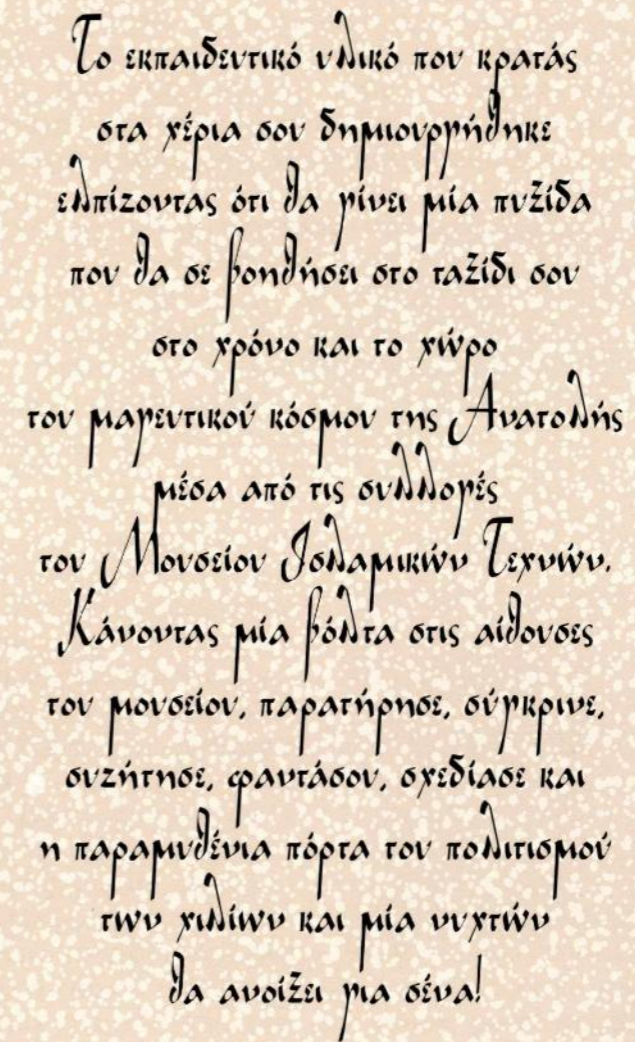 Το εκπαιδευτικό υλικό που κρατάς
στα χέρια σου δημιουργήθηκε
ελπίζοντας ότι θα γίνει μία πυξίδα
που θα σε βοηθήσει στο ταξίδι σου
στο χρόνο και το χώρο
του μαγευτικού κόσμου της Ανατολής
μέσα από τις συλλογές
του Μουσείου Ισλαμικών Τεχνών.
Κάνοντας μία βόλτα στις αίθουσες
του μουσείου, παρατήρησε, σύγκρινε,
συζήτησε, φαντάσου, σχεδίασε και
η παραμυθένια πόρτα του πολιτισμού
των χιλίων και μία νυχτών
θα ανοίξει για σένα!